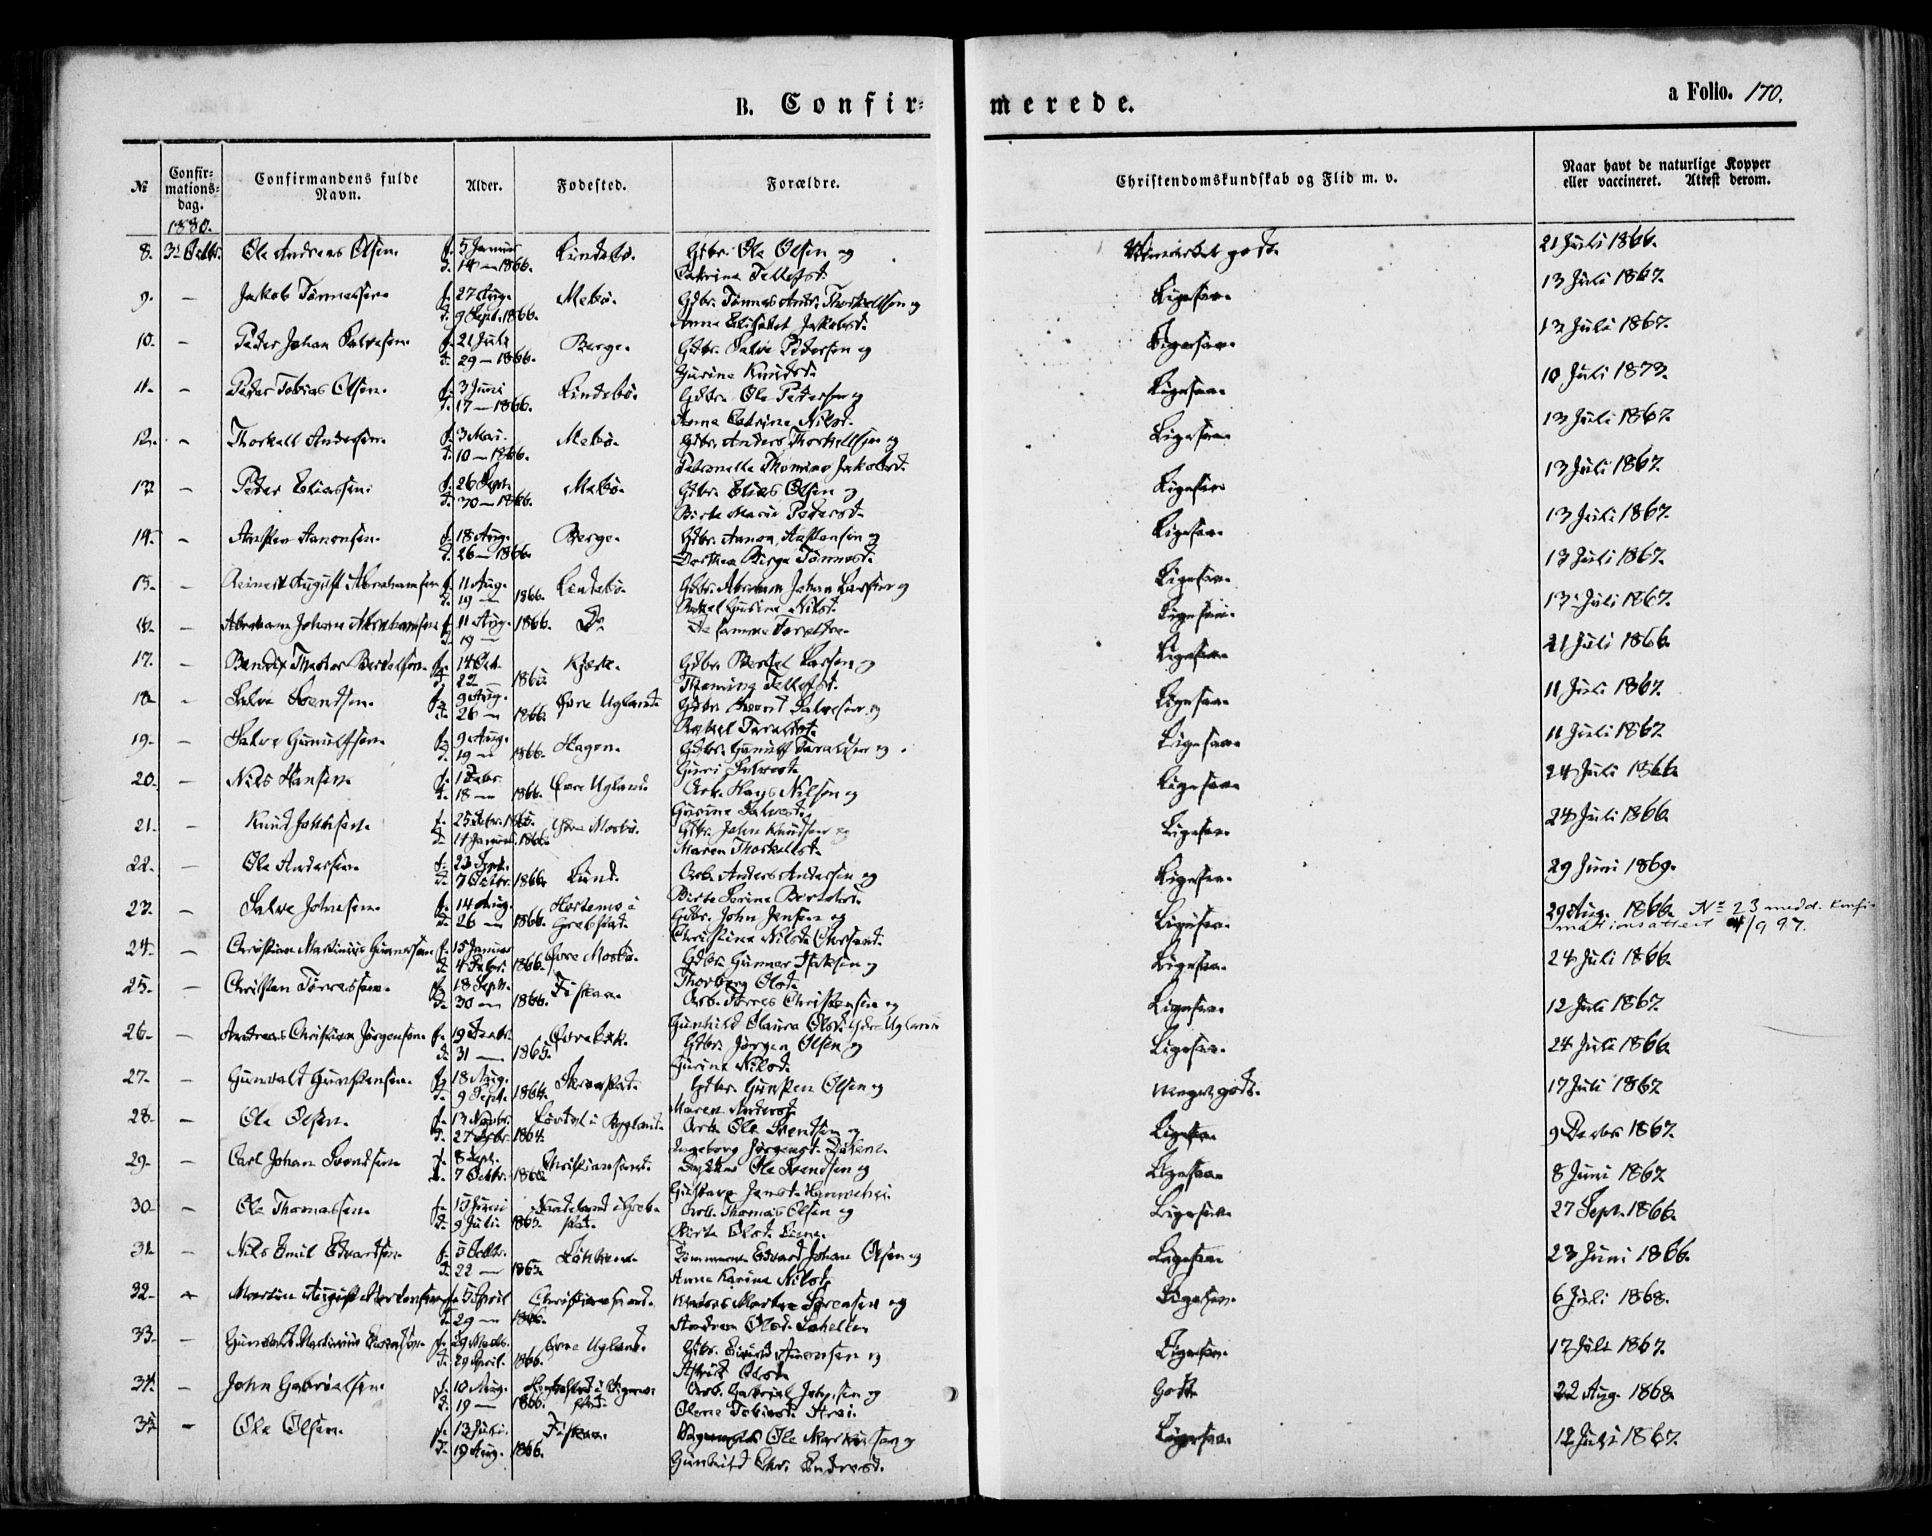 B. Confir=
merede.
a Folio. 170.
№ Confir=mations=dag. Confirmandens fulde Navn. Alder. Fødested. Forældre. Christendomskundskab og Flid m. v. Naar havt de naturlige Kopper eller vaccineret. Attest derom.
1880.
8. 3' Octbr. Ole Andreas Olsen. f. 5 Januar Lindebø. Gdbr. Ole Olsen og godt. 21 Juli 1866.
d. 14 — 1866. Catrine Tellefsd.
9. — Jakob Tønnessen. f. 27 Aug. Mebø. Gdbr. Tønnes Andr. Thorkellsen og Ligesaa. 13 Juli 1867.
d. 9 Sept. 1866. Anne Elisabet Jakobsd.
10. — Peder Johan Salvesen. f. 21 Juli Berge. Gdbr. Salve Pedersen og Ligesaa. 13 Juli 1867.
d. 29 — 1866. Gurine Knudsd.
11. — Peder Tobias Olsen. f. 3 Juni Lindebø. Gdbr. Ole Pedersen og Ligesaa. 10 Juli 1873.
d. 17 — 1866. Anne Catrine Nilsd.
12. — Thorkell Andersen. f. 3 Mai. Mebø. Gdbr. Anders Thorkellsen og Ligesaa. 13 Juli 1867.
d. 10 — 1866. Petronelle Thomine Jakobsd.
13. — Peder Eliassen. f. 26 Sept. Mebø. Gdbr. Elias Olsen og Ligesaa. 13 Juli 1867.
d. 30 — 1866. Birte Marie Pedersd.
14. — Austen Aanonsen. f. 18 Aug. Berge. Gdbr. Aanon Austensen og Ligesaa. 13 Juli 1867.
d. 26 — 1866. Dorthea Birge Tønnesd.
15. — Reinert August Abrahamsen f. 11 Aug. Lindebø. Gdbr. Abraham Johan Larssen og Ligesaa. 13 Juli 1867.
d. 19 — 1866. Rakel Gurine Nilsd.
16. — Abraham Johan Abrahamsen f. 11 Aug. 1866. Do De samme Forældre. Ligesaa. 13 Juli 1867.
d. 19 —
17. — Bendix Theodor Berthelsen. f. 14 Oct. Kjøste. Gdbr. Berthel Larsen og Ligesaa. 21 Juli 1866.
d. 22 — 1865. Thomine Tellefsd.
18. — Salve Svendsen. f. 9 Aug. Øvre Ugland. Gdbr. Svend Salvesen og Ligesaa. 11 Juli 1867.
d. 26 — 1866. Rakel Taraldsd.
19. — Salve Gunulfsen. f. 9 Aug. Hagen. Gdbr. Gunulf Taraldsen og Ligesaa. 11 Juli 1867.
d. 19 — 1866. Guri Salvesd.
20. — Nils Hansen. f. 1 Febr. Øvre Ugland. Arb. Hans Nilsen og Ligesaa. 24 Juli 1866.
d. 18 — 1866. Gurine Salvesd.
21. — Knud Johnsen. f. 25 1865. Øvre Mosbø. Gdbr. John Knudsen og Ligesaa. 24 Juli 1866.
d. 14 Januar 1866. Maren Thorkellsd.
22. — Ole Andersen. f. 23 Sept. Lund. Arb. Anders Andersen og Ligesaa. 29 Juni 1869.
d. 7 Octbr. 1866. Birte Sørine
23. — Salve Johnsen. f. 14 Aug. Høstemo i Gdbr. John Jensen og Ligesaa. 29 Aug. 1866. No 23 medd. konfir-
d. 26 — 1866. Greipstad. Christine Nilsd. mationsattest 4/9 97.
24. — Christian Martinius Gunnersen f. 15 Januar Øvre Mosbø. Gdbr. Gunner Isaksen og Ligesaa. 24 Juli 1866.
d. 4 Febr. 1866. Thorborg Olsd.
25. — Christen Torressen. f. 18 Sept. Fiskaa. Arb. Torres Christensen og Ligesaa. 12 Juli 1867.
d. 30 — 1866. Gunhild Olaura Olsd. Ydre Ugland
26. — Andreas Christian Jørgensen. f. 19 Decbr. Gdbr. Jørgen Olsen og Ligesaa. 24 Juli 1866.
d. 31 — 1865. Gurine Nilsd.
27. — Gunvald Gunstensen. f. 18 Aug. Gdbr. Gunsten Olsen og meget godt. 17 Juli 1867
d. 9 Sept. 1866. Maren Andersd.
28. — Ole Olsen. f. 13 Novbr. i Bygland. Arb. Ole Svendsen og Ligesaa. 9 Decbr. 1867.
d. 27 1864. Ingeborg Jørgensd.
29. — Carl Johan Svendsen f. 8 Sept. Christianssand. Ole Svendsen og Ligesaa. 8 Juni 1867.
d. 7 Octbr. 1866.
30. — Ole Thomassen. f. 15 Juni i Greb- Arb. Thomas Olsen og Ligesaa. 27 Sept. 1866.
d. 9 Juli 1865. stad. Birte Olsd.
31. — Nils Emil Edvardsen. f. 5 Octbr. Tømmerm. Edvard Johan Olsen og Ligesaa. 23 Juni 1866.
d. 22 — 1865. Anne Karine Nilsd.
32. — Martin August Mortensen f. 5 April Christianssand. Morten Sørensen og Ligesaa. 6 Juli 1868.
d. 29 — 1866. Andrea Olsd.
33. — Gunvald Martinius f. 29 Marts. Øvre Ugland. Gdbr. og Ligesaa. 17 Juli 1867.
d. 29 April. 1866. Olsd.
34. — John Gabrielsen. f. 10 Aug. Arb. Gabriel Johnsen og Godt. 22 Aug. 1868.
d. 19 — 1866. Olene Tobiasd.
35. — Ole Olsen. f. 13 Juli. Fiskaa. Ole Markussen og Ligesaa. 12 Juli 1867.
d. 19 Aug. 1866. Gunhild Chr. Endresd.